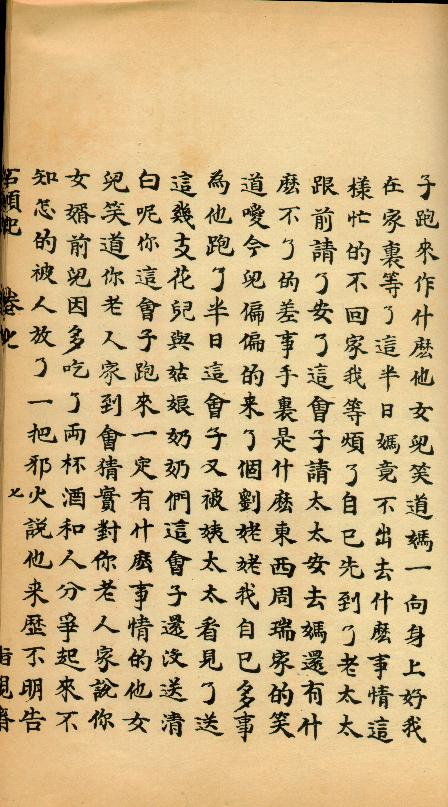 子跑來作什麽他女兒笑道媽一向身上好我
在家裏等了這半日媽竟不出去什麽事情這
樣忙的不回家我等煩了自己先到了老太太
跟前請了安了這會子請太太安去媽還有什
麽不了的差事手裏是什麽東西周瑞家的笑
道噯今兒偏偏的来了個劉姥姥我自己多事
為他跑了半日這會子又被姨太太看見了送
這幾支花兒與姑娘奶奶們這會子還沒送清
白呢你這會子跑來一定有什麽事情的他女
兒笑道你老人家到會猜實對你老人家說你
女婿前兒因多吃了兩杯酒和人分爭起來不
知怎的被人放了一把邪火説他来歷不明告
石頭記 卷七 七